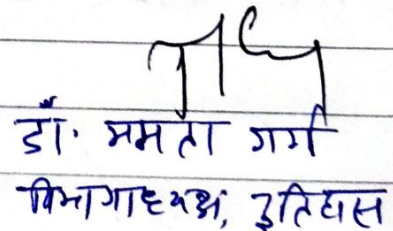 डॉ. ममता गर्ग
विभागाध्यक्ष, इतिहास